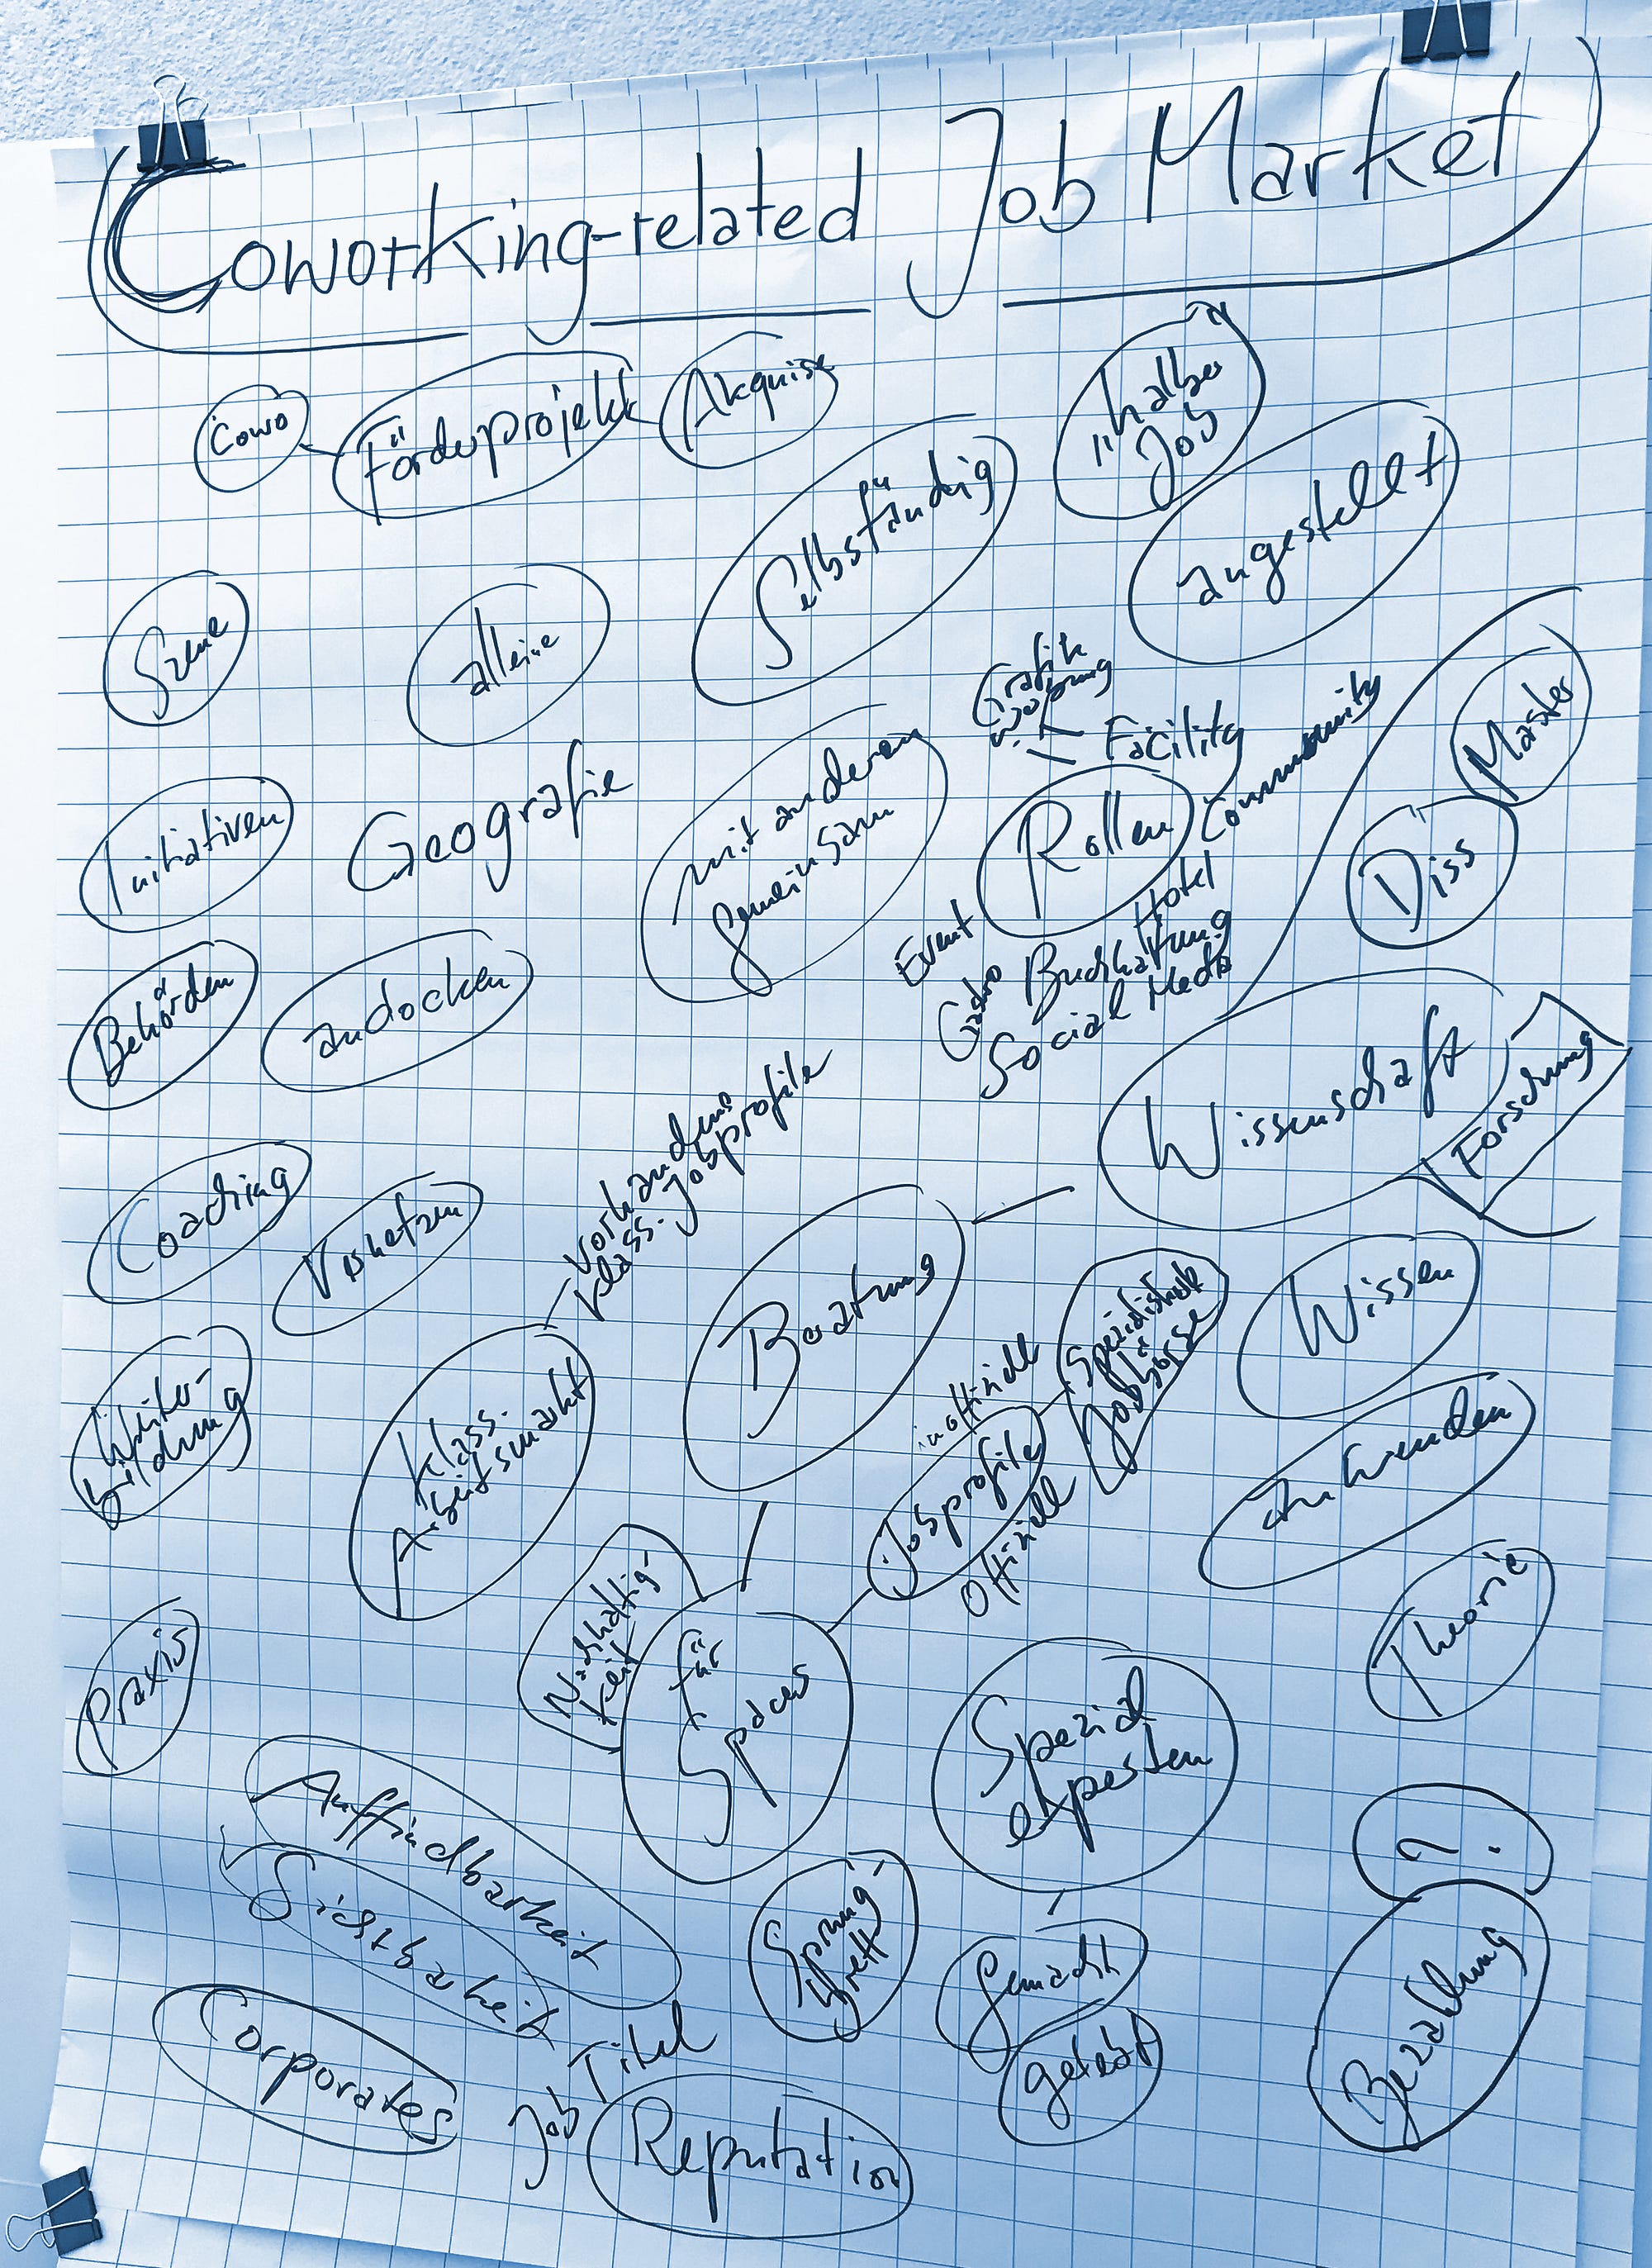 Coworking-related Job Market
Cowo
Förderprojekt
Akquise
"halber
Job"
Selbständig
angestellt
Szene
alleine
Grafik
Facility
Community
Master
Initiativen
Geografie
mit anderen
gemeinsam
Rollen
Diss
Event
Hotel
Gastro
Buchhaltung
Social Media
Behörden
andocken
Wissenschaft
Forschung
Vorhandene
klass. Jobprofile
Coaching
Vernetzen
Beratung
Spezialisierte
Jobbörse
Wissen
Weiter-
bildung
klass.
Arbeitsmarkt
inoffiziell
Jobprofile
Offiziell
anwenden
Nachhaltig-
keit
für
Spaces
Theorie
Praxis
Spezial
experten
Auffindbarkeit
Sichtbarkeit
Sprung-
brett
gemacht
gelebt
?
Bezahlung
Corporates
Job Titel
Reputation